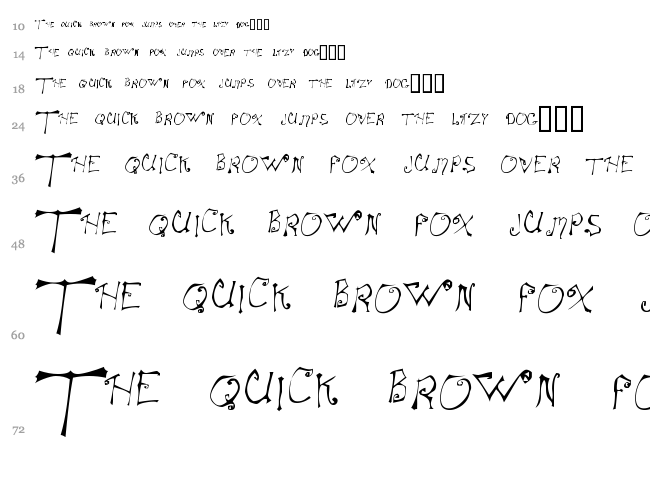 10 The quick brown fox jumps over the lazy dog□□□
14 The quick brown fox jumps over the lazy dog□□□
18 The quick brown fox jumps over the lazy dog□□□
24 The quick brown fox jumps over the lazy dog□□□
36 The quick brown fox jumps over the
48 The quick brown fox jumps o
60 The quick brown fox j
72 The quick brown fo